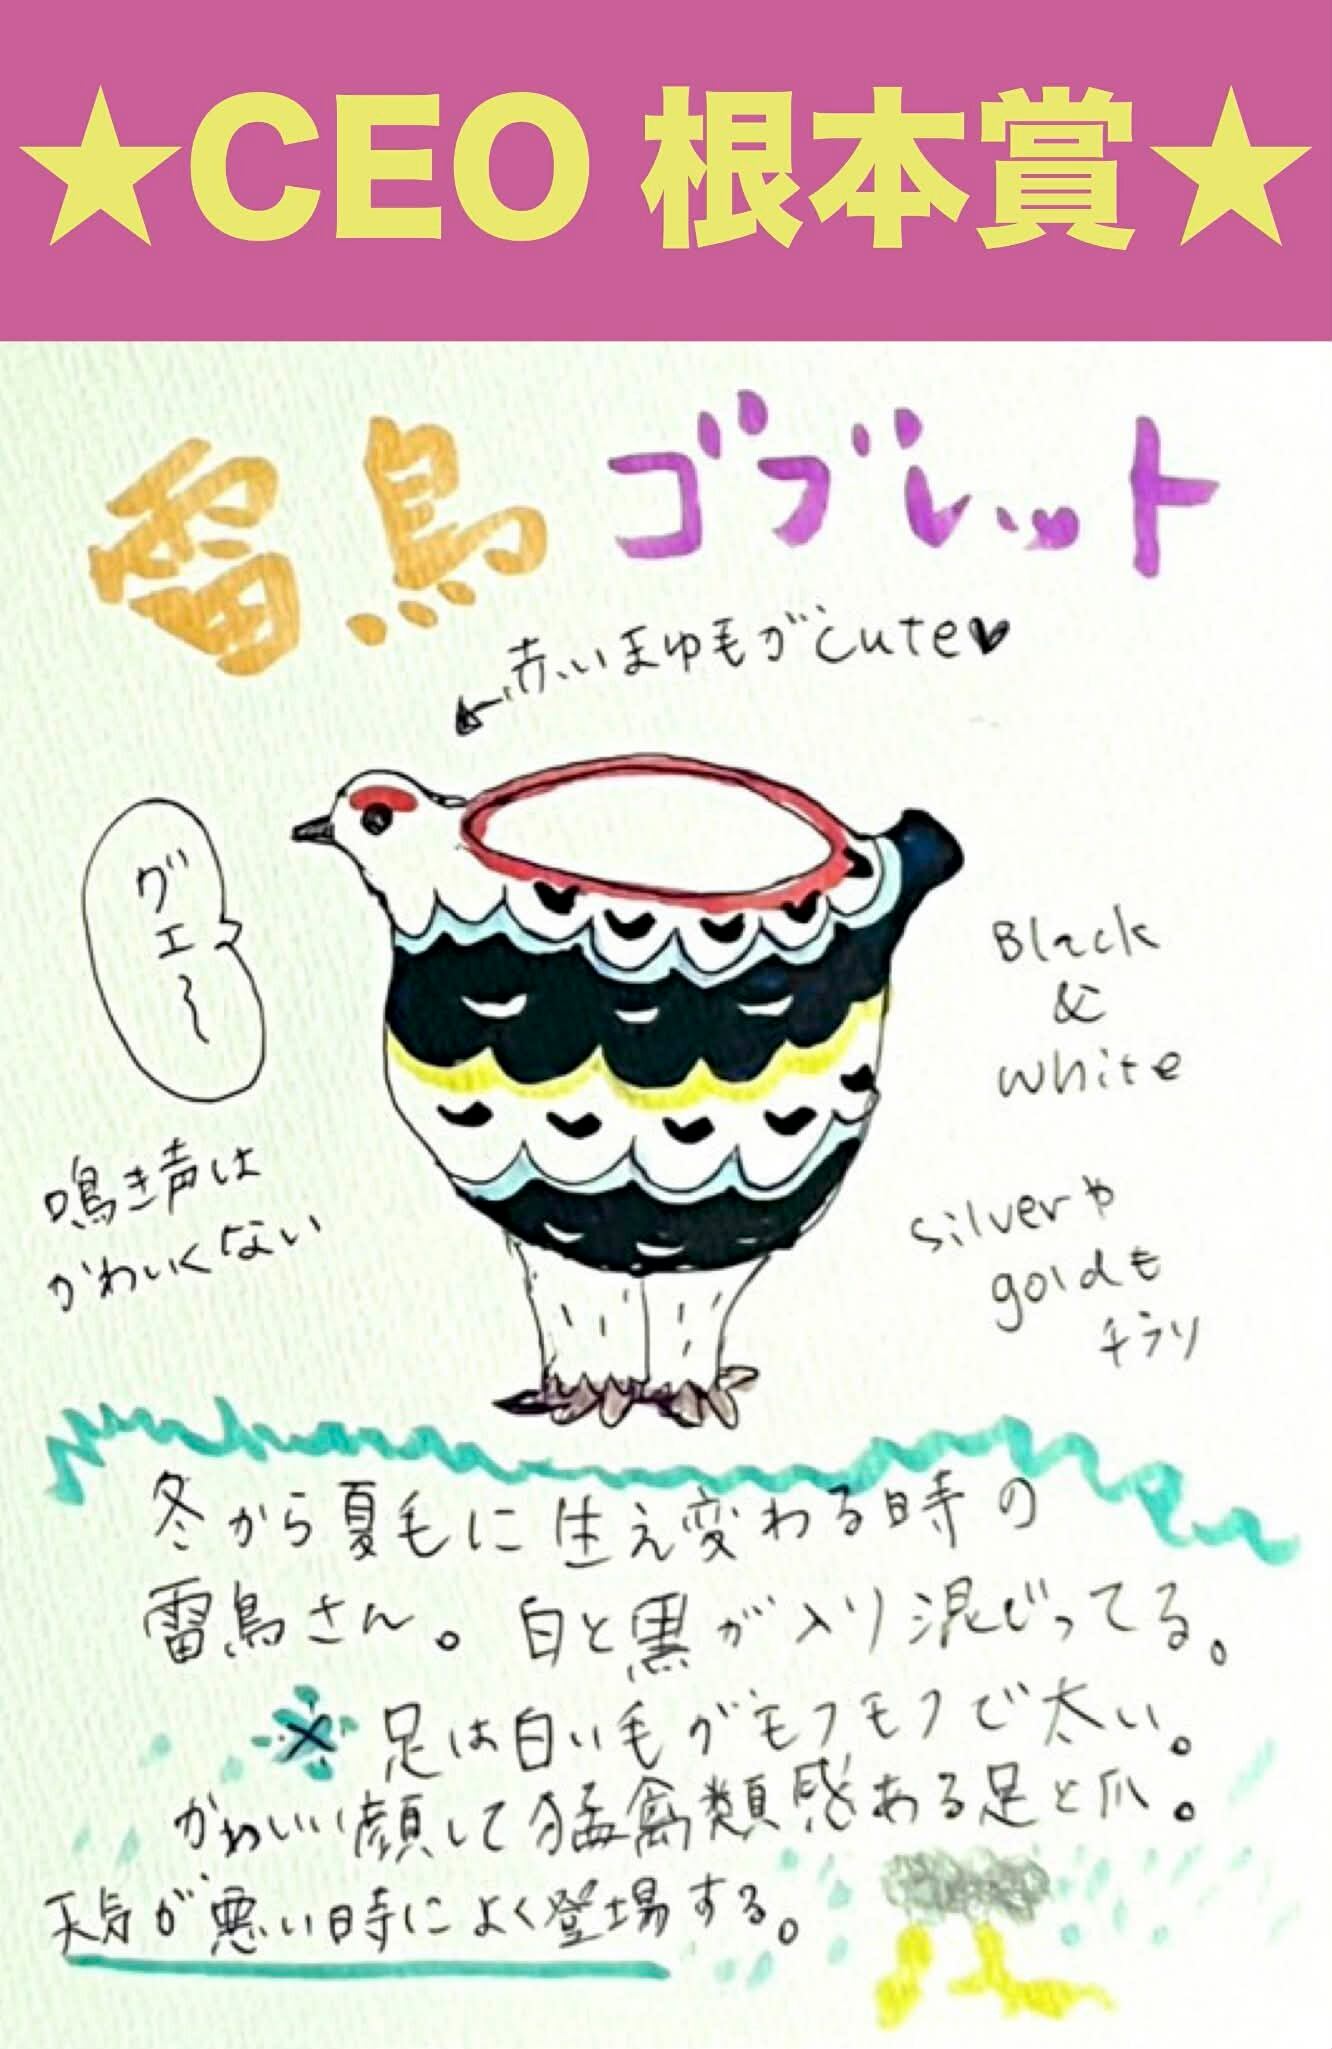 ★CEO 根本賞★
雷鳥ゴブレット
赤いまゆ毛がcute♥
グエ〜
Black
&
white
鳴き声は
かわいくない
silverや
goldも
チラリ
冬から夏毛に生え変わる時の
雷鳥さん。白と黒が入り混じってる。
※足は白い毛がモフモフで太い。
かわいい顔して猛禽類感ある足と爪。
天気が悪い時によく登場する。